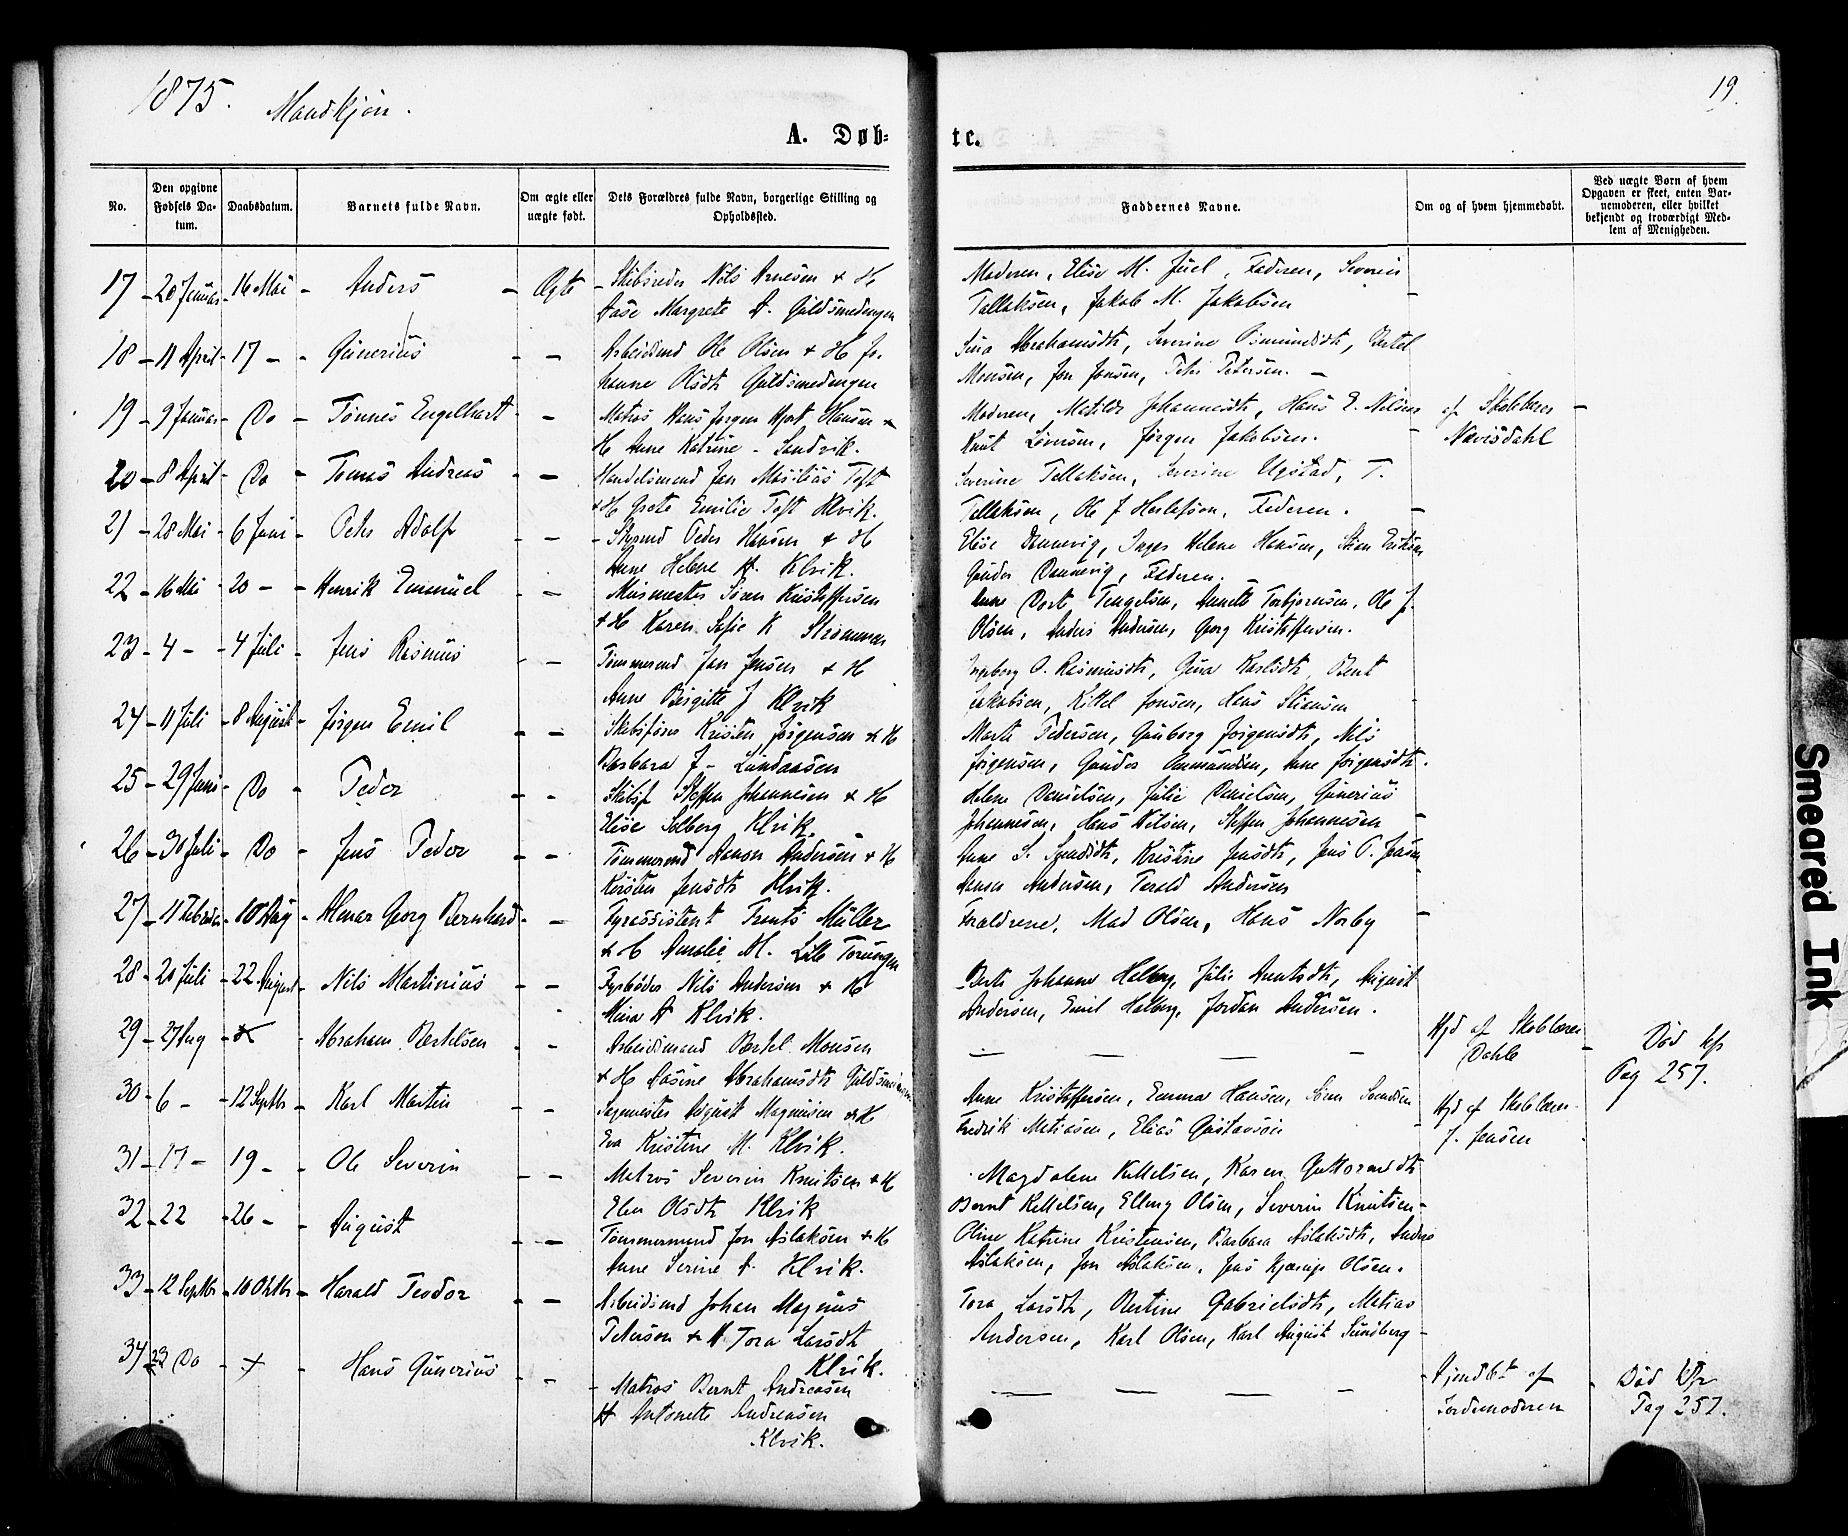 1875. Mandkjøn.
19.
A. Døb-
te.
No.
Den opgivne Fødsels Da-tum.
Daabsdatum.
Barnets fulde Navn.
Om ægte eller uægte født.
Dets Forældres fulde Navn, borgerlige Stilling og Opholdssted.
Faddernes Navne.
Om og af hvem hjemmedøbt.
Ved uægte Børn af hvem Opgaven er skeet, enten Bar-nemoderen, eller hvilket bekjendt og troværdigt Med-lem af Menigheden.
17 - 20 Januar - 16 Mai - Anders - Ægte - Skibsreder Nils Arnesen + H
Aase Margrete A. Guldsmedengen
Moderen, Elise M. Juel, Faderen, Severin
Tellaksen, Jakob M. Jakobsen
18 - 11 April - 17 - - Gunerius - - Arbeidsmd Ole Olsen + H Jo-
hanne Olsdtr Guldsmedengen
Sina Abrahamsdtr, Severine Osmundsdtr, Bertel
Monsen, Jon Jonsen, Peter Petersen. -
19 - 9 Januar - Do - Tønnes Engelhart - - Matros Hans Jørgen Hjort Hansen +
H Anne Katrine - Sandvik.
Moderen, Matilde Johannesdtr, Hans E. Nilsen
Knut Larsen, Jørgen Jakobsen. -
af Skolelærer -
Nævisdahl
20 - 8 April - Do - Tomas Andreas - - Handelsmand Jan Matias Toft
+ H Grete Emilie Toft Klvik.
Severine Tellaksen, Severine Ugstad, T.
Tellaksen, Ole J Herlofson, Faderen. -
21 - 28 Mai - 6 Juni - Peter Adolf - - - Styrmd Peder Hansen + H
Anne Helene H. Klvik.
Elise Dannevig, Inger Helene Hansen, Stian Eriksen
Gunder Dannevig, Faderen. -
22 - 16 Mai - 20 - - Henrik Emanuel - - Murmester Søren Kristoffersen
+ H Karen Sofie K Strømmen
Anne Dort. Tengelsen, Annette Torbjørnsen, Ole J.
Olsen, Anders Andersen, Georg Kristoffersen.
23 - 4 - - 4 Juli - Jens Rasmus - - Tømmermd Jan Jensen + H
Anne Birgitte J Klvik
Ingeborg O. Rasmusdtr, Gina Karlsdtr, Bent
Jakobsen, Kittel Jonsen, Hans Stiansen
24 - 11 Juli - 8 August - Jørgen Emil - - Skibsfører Kristen Jørgensen + H
Barbara J - Lundaasen
Marte Pedersen, Gunborg Jørgensdtr, Nils
Jørgensen, Gunder Anmundsen, Anne Jørgensdtr.
25 - 29 Juni - Do - Peder - - Skibsf Steffen Johannesen + H
Elise Solberg Klvik.
Helene Danielsen, Julie Danielsen, Gunerius
Johannesen, Hans Nilsen, Steffen Johannesen -
26 - 30 Juli - Do - Jens Peder - - Tømmermd Aanon Andersen + H
Kirsten Jensdtr Klvik.
Anne S. Svendsdtr, Kristine Jensdtr, Jens P. Jensen
Aanon Andersen, Terald Andersen
27 - 11 Februar - 10 Aug - Almar Georg Bernhard - - Fyrassistent Frants Müller
+ H Amalie M. Lille Torungen
Forældrene, Mad Olsen, Hans Norby -
28 - 20 Juli - 22 August - Nils Martinius - - Fyrbøder Nils Andersen + H
Mina A Klvik.
Berte Johanne Helberg, Julie Arentsdtr, August
Andersen, Emil Helberg, Jordan Andersen.
29 - 27 Aug - - Abraham Bertelsen - - Arbeidsmand Bertel Monsen
+ H Aasine Abrahamsdtr Guldsmedengen
- - - -
Hjd af Skolelærer
Dahle -
Død Kfr
Pag 257.
30 - 6 - - 12 Septbr - Karl Martin - - Sagmester August Magnusen + H
Eva Kristine M. Klvik.
Anne Kristoffersen, Emma Hansen, Søren Svendsen
Fredrik Matiasen, Elias Gustavson -
Hjd af Skolelærer
J. Jensen
31 - 17 - 19 - - Ole Severin - - Matros Severin Knutsen + H
Elen Olsdtr Klvik
Magdalene Kittelsen, Karen Guttormsdtr
Bernt Kittelsen, Elling Olsen, Severin Knutsen -
32 - 22 26 - - August - - Tømmermand Jon Aslaksen + H
Anne Serine A. Klvik.
Oline Katrine Kristensen, Barbara Aslaksdtr, Anders
Aslaksen, Jon Aslaksen, Jens Kjærup Olsen.
33 - 12 Septbr - 10 Oktbr - Harald Teodor - - Arbeidsmd Johan Magnus
Petersen + H Tora Larsdtr
Klvik.
Tora Larsdtr, Bertine Gabrielsdtr, Matias
Andersen, Karl Olsen, Karl August Sundberg -
34 - 23 Do - + - Hans Gunerius - - - Matros Bernt Andreasen
H Antonette Andreasen
Klvik.
- - - -
Hjemdbt af
Jordemoderen
Død Kfr
Pag 257.
Smeared Ink